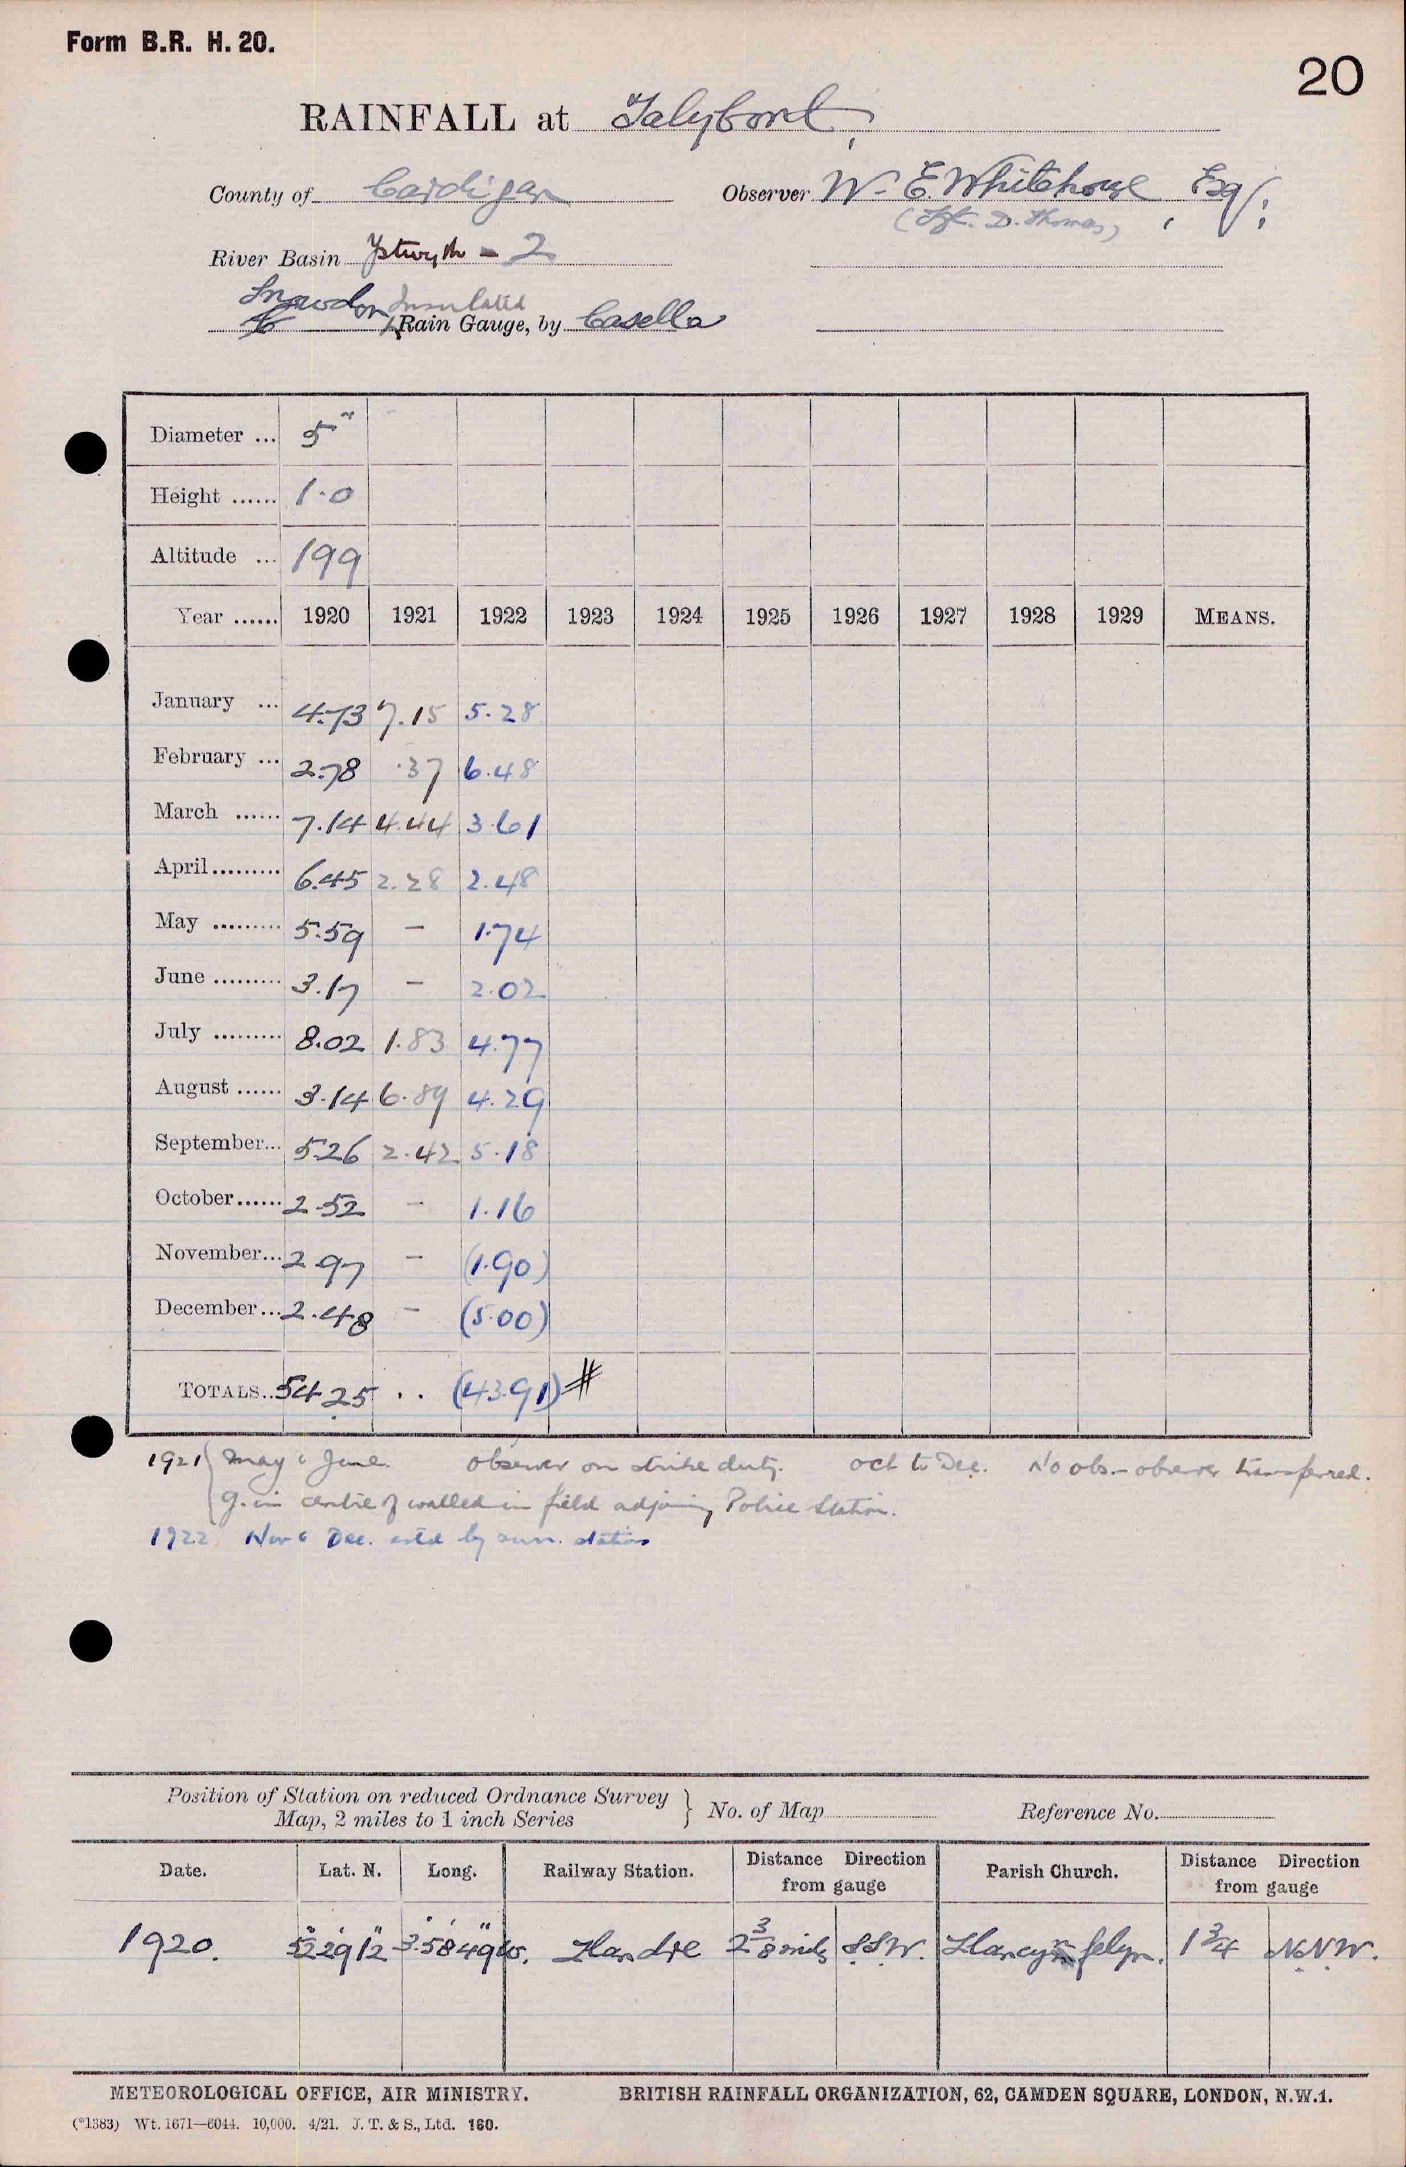 Form B.R. H. 20.
20
RAINFALL at Talybont,
County of Cardigan
Observer W. E. Whitehouse, Esq.;
(Sgt. D. Thomas)
River Basin Ystwyth - 2
Snowdon Insulated
Rain Gauge, by Casella
Diameter ... 5"
Height ...... 1.0
Altitude ... 199
Year ...... 1920 1921 1922 1923 1924 1925 1926 1927 1928 1929 MEANS.
January ... 4.73 7.15 5.28
February ... 2.78 .37 6.48
March ...... 7.14 4.44 3.61
April ......... 6.45 2.28 2.48
May ......... 5.59 - 1.74
June ......... 3.17 - 2.02
July ......... 8.02 1.83 4.77
August ...... 3.14 6.89 4.29
September... 5.26 2.42 5.18
October...... 2.52 - 1.16
November... 2.97 - (1.90)
December... 2.48 - (5.00)
TOTALS.. 54.25 .. (43.91) #
1921 { May & June. observer on strike duty. Oct to Dec. No obs. - observer transferred.
g. in centre of walled in field adjoining Police Station.
1922 Nov & Dec. estd by surr. stations
Position of Station on reduced Ordnance Survey
Map, 2 miles to 1 inch Series
} No. of Map
Reference No.
Date. Lat. N. Long. Railway Station. Distance Direction from gauge Parish Church. Distance Direction from gauge
1920. 52° 29' 12" 3° 58' 49" W. Llandre 2 3/8 miles S.S.W. Llancynfelyn. 1 3/4 N.N.W.
METEOROLOGICAL OFFICE, AIR MINISTRY.
BRITISH RAINFALL ORGANIZATION, 62, CAMDEN SQUARE, LONDON, N.W.1.
(*1383) Wt. 1671—6044. 10,000. 4/21. J. T. & S., Ltd. 160.